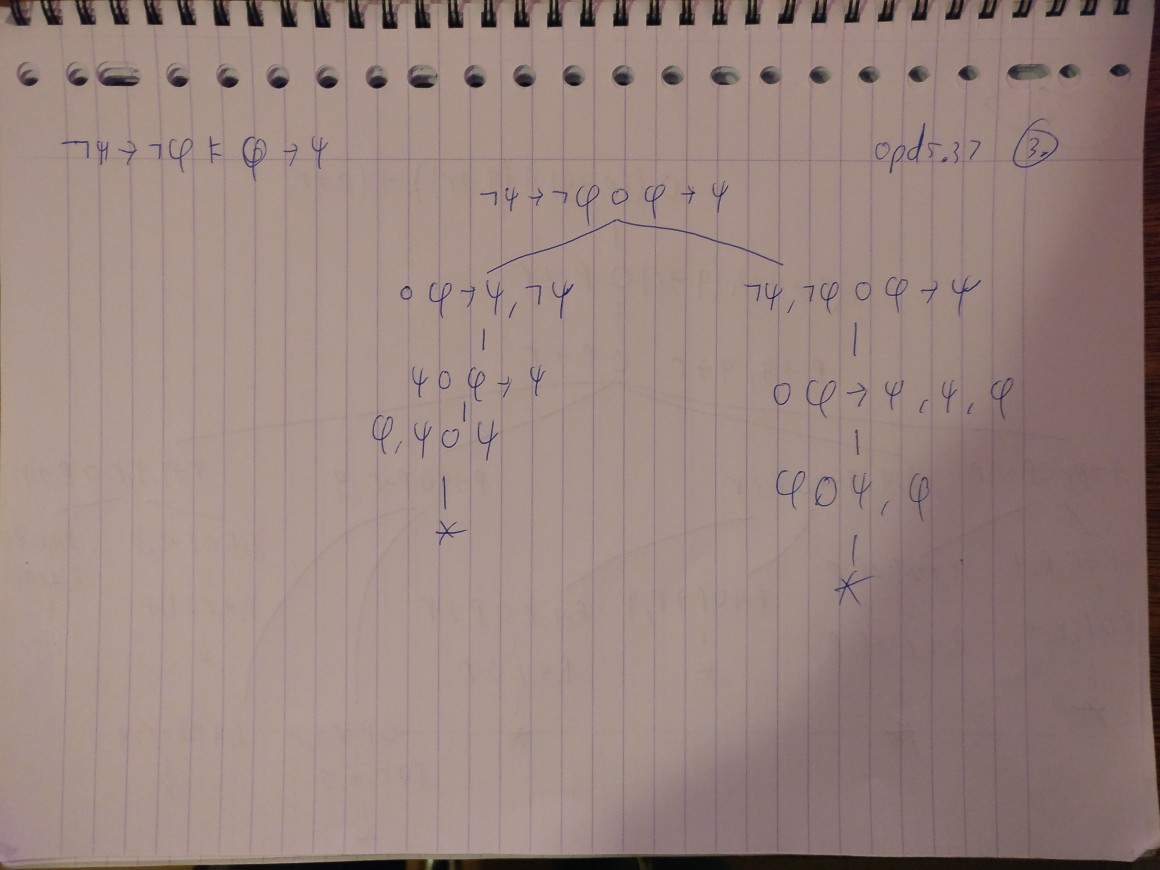 ¬ψ→¬φ ⊧ φ→ψ
opd 5.37 ③.
¬ψ→¬φ ○ φ→ψ
○ φ→ψ, ¬ψ
¬ψ, ¬φ ○ φ→ψ
ψ ○ φ→ψ
○ φ→ψ, ψ, φ
φ, ψ ○ ψ
φ ○ ψ, φ
*
*